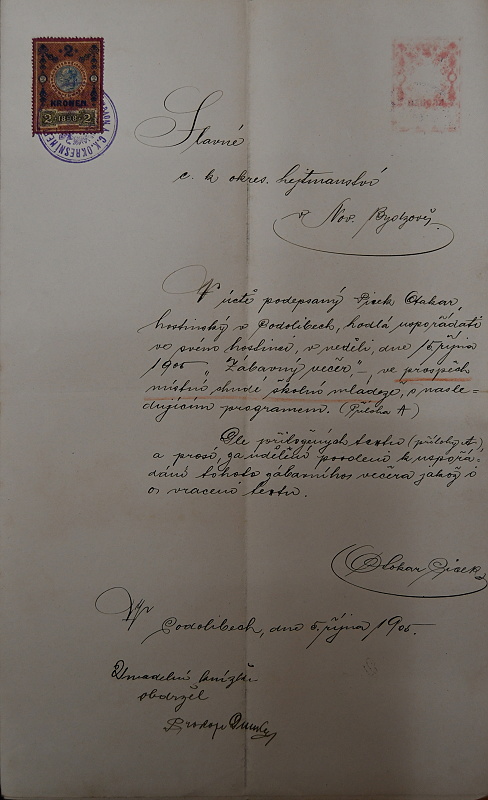 2
KRONEN
2 1898 2
C.K. OKRESNÍ HE
Slavné
c. k. okres. hejtmanství
v Nov. Bydžově.
V úctě podepsaný Picek Otakar,
hostinský v Podolibech, hodlá uspořádati
ve svém hostinci, v neděli, dne 15. října
1905 „Zábavný večer", ve prospěch
místní chudé školní mládeže, s násle-
dujícím programem. (Příloha A)
Dle přiložených textů (přílohy A)
a prosí, za udělení povolení k uspořá-
dání tohoto zábavního večera jakož i
o vrácení textu.
Otokar Picek
V
Podolibech, dne 5. října 1905.
obdržel
Prokop